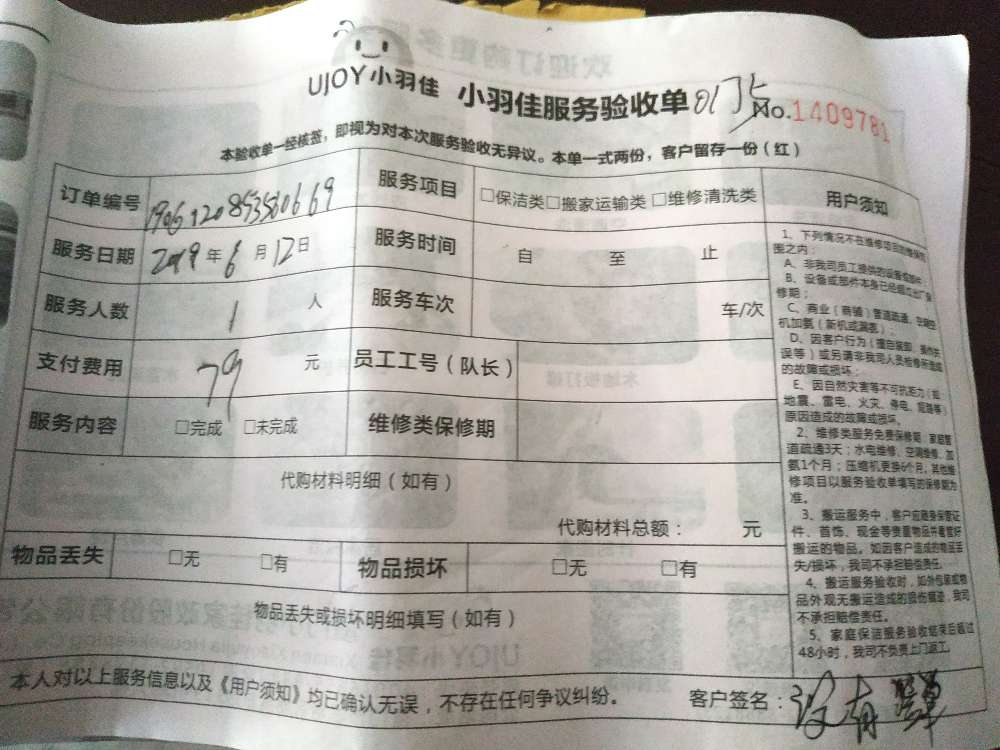 UJOY小羽佳 小羽佳服务验收单 No.1409781
本验收单一经核签，即视为对本次服务验收无异议。本单一式两份，客户留存一份（红）
订单编号 服务项目 □保洁类□搬家运输类 □维修清洗类 用户须知
服务日期 2019年6月12日 服务时间 自 至 止
服务人数 1 人 服务车次 车/次
支付费用 79 元 员工工号（队长）
服务内容 □完成 □未完成 维修类保修期
代购材料明细（如有）
代购材料总额： 元
物品丢失 □无 □有 物品损坏 □无 □有
物品丢失或损坏明细填写（如有）
本人对以上服务信息以及《用户须知》均已确认无误，不存在任何争议纠纷。 客户签名：
1、下列情况不在维修项目的保修范
围之内：
A、非我司员工提供的设备或部件；
B、设备或部件本身已经超过出厂保
修期；
C、商业（商铺）管道疏通、空调空
机加氨（新机或漏表）；
D、因客户行为（擅自装卸、操作失
误等）或另请非我司人员检修所造成
的故障或损坏；
E、因自然灾害等不可抗拒力（如
地震、雷电、火灾、停电、短路等）
原因造成的故障或损坏。
2、维修类服务免费保修期：家庭管
道疏通3天；水电维修、空调维修、加
氨1个月；压缩机更换6个月，其他维
修项目以服务验收单填写的保修期为
准。
3、搬运服务中，客户应随身保管证
件、首饰、现金等贵重物品并看管好
搬运的物品。如因客户造成的物品丢
失/损坏，我司不承担赔偿责任。
4、搬运服务验收时，如外包装或物
品外观无搬运造成的损伤痕迹，我司
不承担赔偿责任。
5、家庭保洁服务验收结束后超过
48小时，我司不负责上门返工。